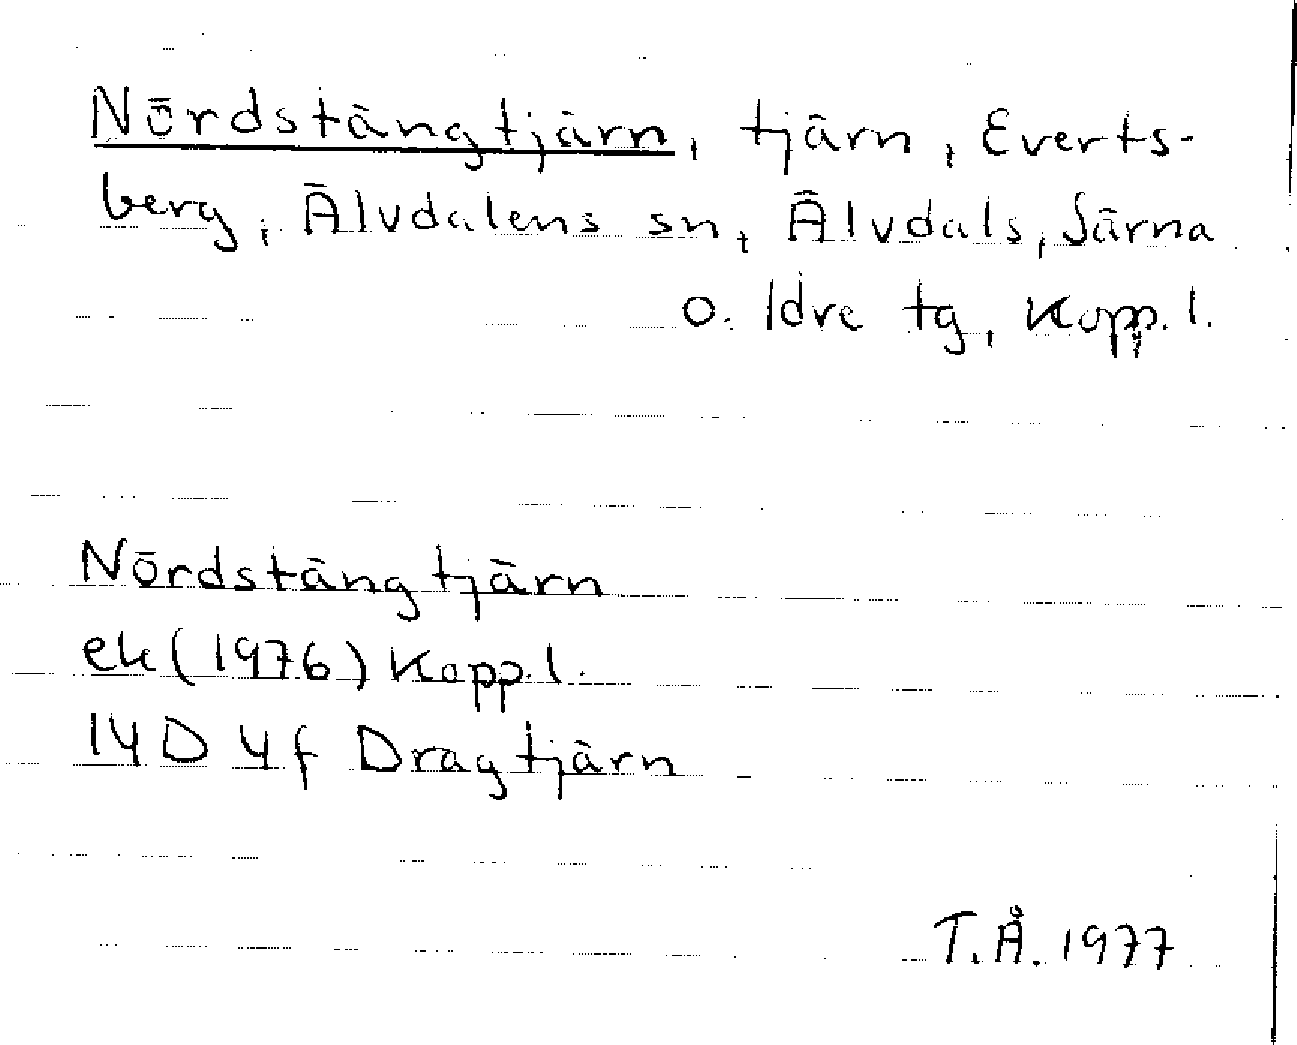 Nördstängtjärn, tjärn, Everts-
berg, Älvdalens sn, Älvdals, Särna
o. Idre tg, Kopp. l.
Nördstängtjärn
ek (1976) Kopp. l.
14D 4f Dragtjärn
T.Å. 1977